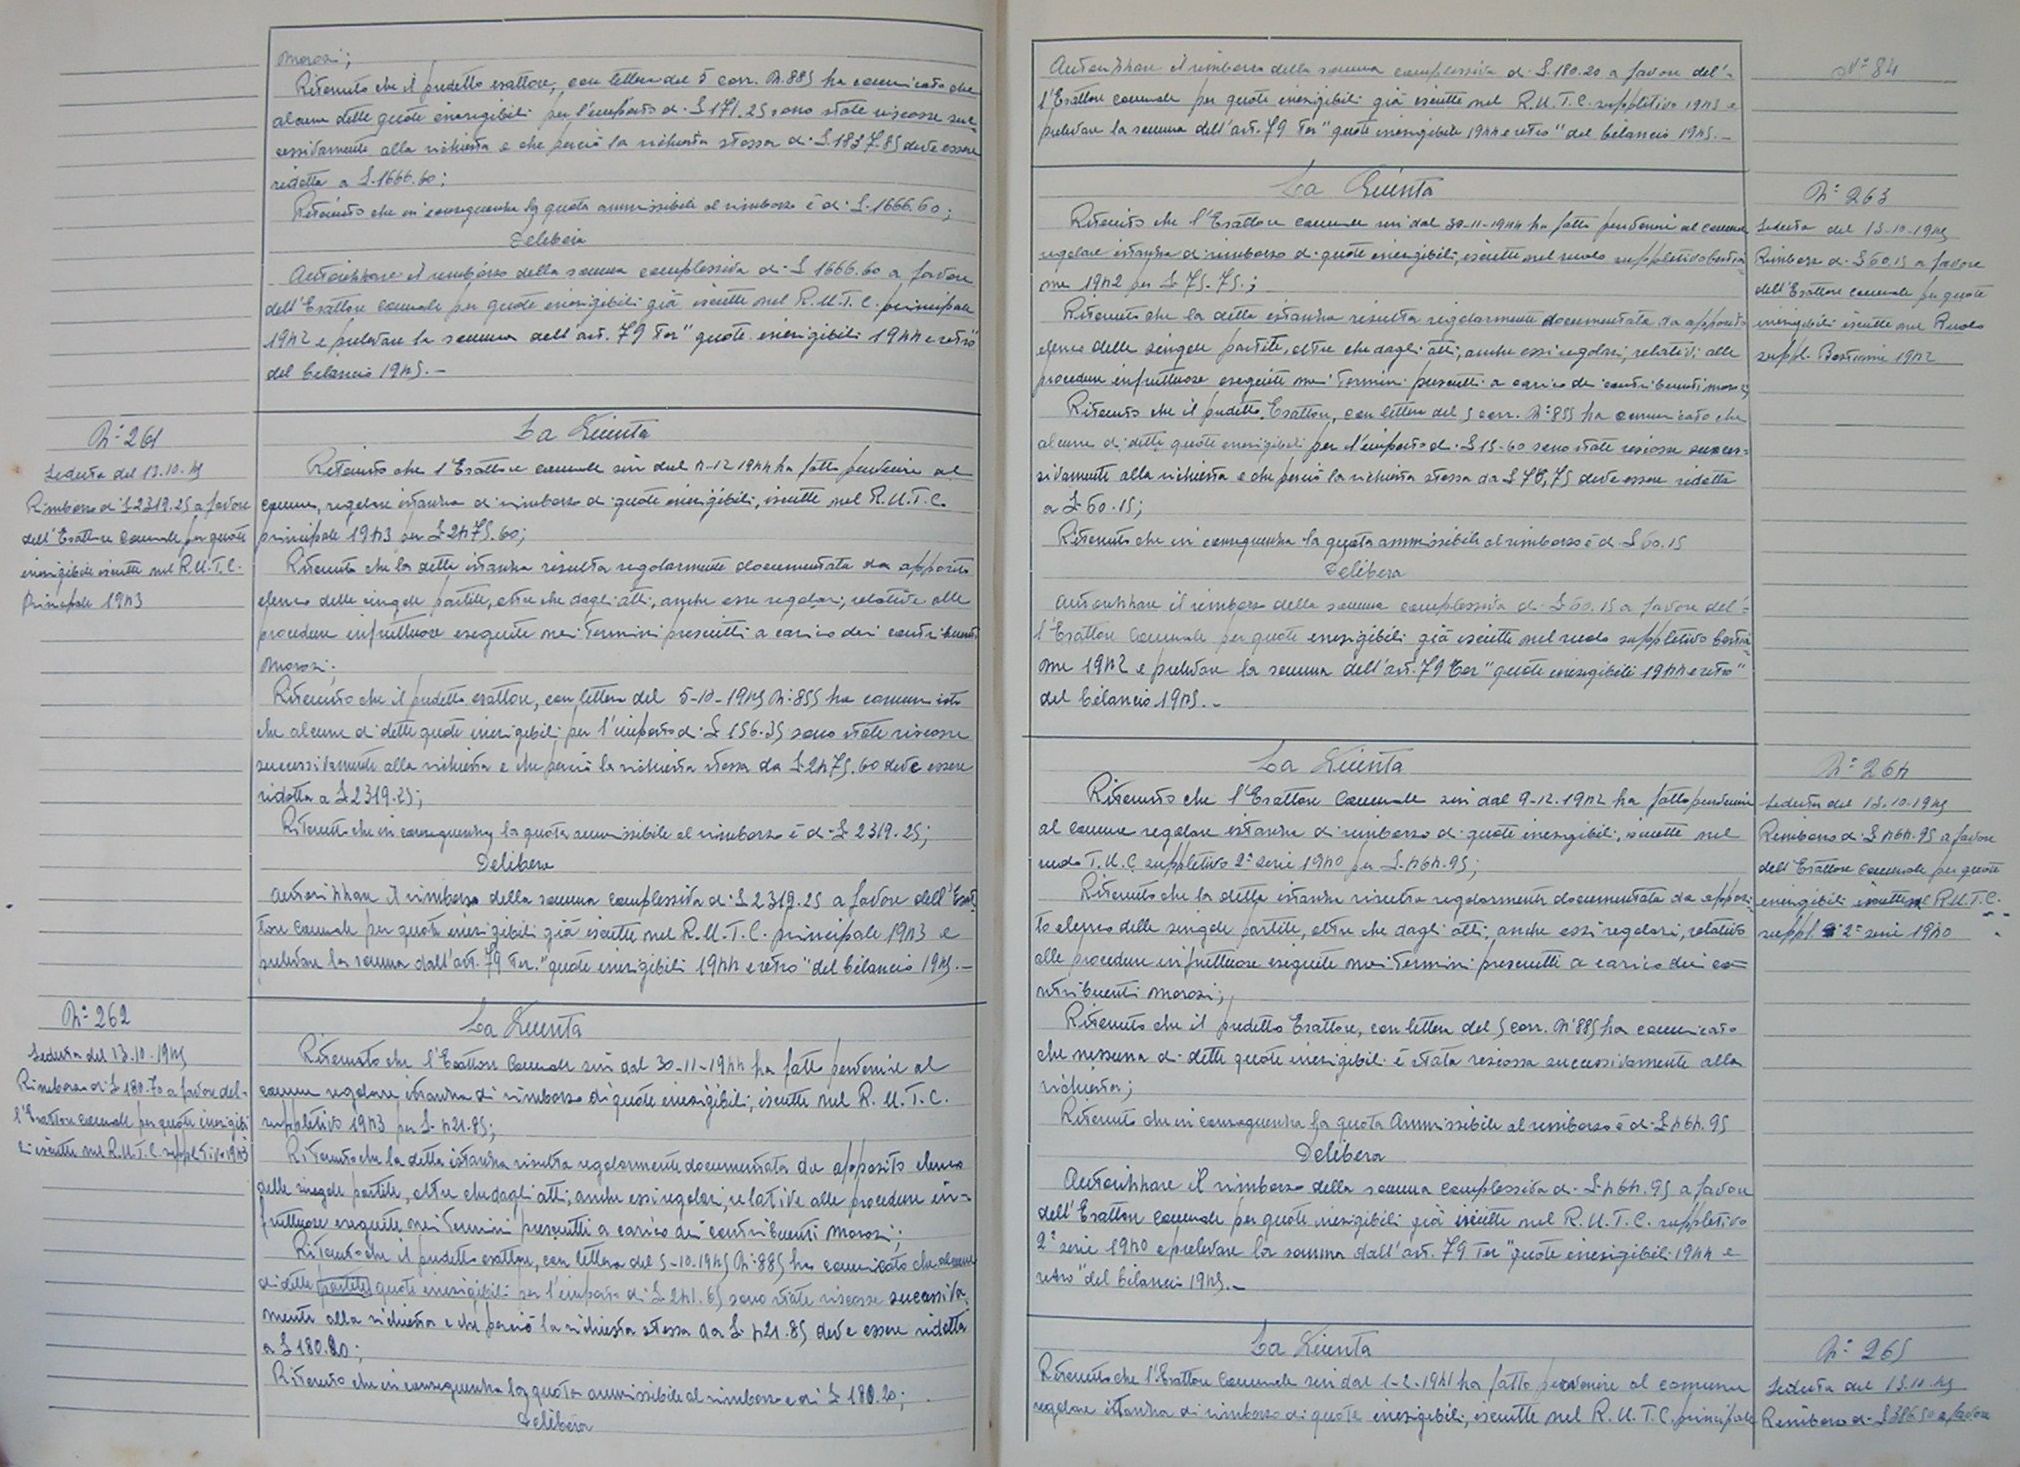 morosi;
Ritenuto che il predetto esattore, con lettera del 5 corr. N. 885 ha comunicato che
alcune dette quote inesigibili per l'importo di £ 171.25 sono state riscosse suc-
cessivamente alla richiesta e che perciò la richiesta stessa di £. 1837.85 deve essere
ridotta a £. 1666.60;
Ritenuto che in conseguenza la quota ammissibile al rimborso è di £. 1666.60;
Delibera
Autorizzare il rimborso della somma complessiva di £ 1666.60 a favore
dell'Esattore comunale per quote inesigibili già iscritte nel R.U.T.C. principale
1942 e prelevare la somma dell'art. 79 Ter "quote inesigibili 1944 e retro"
del bilancio 1945.-
N.º 261
Seduta del 13.10.45
Rimborso di £ 2319.25 a favore
dell'Esattore Comunale per quote
inesigibili iscritte nel R.U.T.C.
Principale 1943
La Giunta
Ritenuto che l'Esattore comunale sin dal 4-12 1944 ha fatto pervenire al
comune, regolare istanza di rimborso di quote inesigibili, iscritte nel R.U.T.C.
principale 1943 per £ 2475.60;
Ritenuto che la detta istanza risulta regolarmente documentata da apposito
elenco delle singole partite, oltre che dagli atti, anche esse regolari, relative alle
procedure infruttuose eseguite nei termini prescritti a carico dei contribuenti
morosi.
Ritenuto che il predetto esattore, con lettera del 5-10-1945 N. 855 ha comunicato
che alcune di dette quote inesigibili per l'importo di £ 156.35 sono state riscosse
successivamente alla richiesta e che perciò la richiesta stessa da £ 2475.60 deve essere
ridotta a £ 2319.25;
Ritenuto che in conseguenza la quota ammissibile al rimborso è di £ 2319.25;
Delibera
Autorizzare il rimborso della somma complessiva di £ 2319.25 a favore dell'Esat-
tore comunale per quote inesigibili già iscritte nel R.U.T.C. principale 1943 e
prelevare la somma dall'art. 79 Ter. "quote inesigibili 1944 e retro" del bilancio 1945.-
N.º 262
Seduta del 13.10.1945
Rimborso di £ 180.70 a favore del-
l'Esattore comunale per quote inesigibi
li iscritte nel R.U.T.C. suppletivo 1943
La Giunta
Ritenuto che l'Esattore Comunale sin dal 30-11-1944 ha fatto pervenire al
comune regolare istanza di rimborso di quote inesigibili, iscritte nel R.U.T.C.
suppletivo 1943 per £. 421.85;
Ritenuto che la detta istanza risulta regolarmente documentata da apposito elenco
delle singole partite, oltre che dagli atti, anche essi regolari, relative alle procedure in-
fruttuose eseguite nei termini prescritti a carico dei contribuenti morosi;
Ritenuto che il predetto esattore, con lettera del 5-10.1945 N. 885 ha comunicato che alcune
di dette (partite) quote inesigibili per l'importo di £ 241.65 sono state riscosse successiva-
mente alla richiesta e che perciò la richiesta stessa da £. 421.85 deve essere ridotta
a £ 180.20;
Ritenuto che in conseguenza la quota ammissibile al rimborso è di £ 180.20;
Delibera
Nº 84
Autorizzare il rimborso della somma complessiva di £. 180.20 a favore del-
l'Esattore comunale per quote inesigibili già iscritte nel R.U.T.C. suppletivo 1943 e
prelevare la somma dell'art. 79 Ter "quote inesigibile 1944 e retro" del bilancio 1945.-
La Giunta
Ritenuto che l'Esattore comunale sin dal 30-11-1944 ha fatto pervenire al comune
regolare istanza di rimborso di quote inesigibili, iscritte nel ruolo suppletivo bestia-
me 1942 per £. 75.75;
Ritenuto che la detta istanza risulta regolarmente documentata da apposito
elenco delle singole partite, oltre che dagli atti, anche essi regolari, relativi alle
procedure infruttuose eseguite nei termini prescritti a carico dei contribuenti morosi;
Ritenuto che il predetto Esattore, con lettera del 5 corr. Nº 855 ha comunicato che
alcune di dette quote inesigibili per l'importo di £ 15-60 sono state riscosse succes-
sivamente alla richiesta e che perciò la richiesta stessa da £ 75,75 deve essere ridotta
a £ 60.15;
Ritenuto che in conseguenza la quota ammissibile al rimborso è di £ 60.15
Delibera
Autorizzare il rimborso della somma complessiva di £ 60.15 a favore del-
l'Esattore Comunale per quote inesigibili già iscritte nel ruolo suppletivo bestia-
me 1942 e prelevare la somma dell'art. 79 Ter "quote inesigibili 1944 e retro"
del bilancio 1945.-
N.º 263
Seduta del 13-10-1945
Rimborso di £ 60.15 a favore
dell'Esattore Comunale per quote
inesigibili iscritte nel Ruolo
suppl. Bestiame 1942
La Giunta
Ritenuto che l'Esattore Comunale sin dal 9-12.1942 ha fatto pervenire
al comune regolare istanza di rimborso di quote inesigibili, iscritte nel
ruolo T.U.C suppletivo 2ª serie 1940 per £. 464.95;
Ritenuto che la detta istanza risulta regolarmente documentata da apposi-
to elenco delle singole partite, oltre che dagli atti, anche essi regolari, relativo
alle procedure infruttuose eseguite nei termini prescritti a carico dei co-
ntribuenti morosi;
Ritenuto che il predetto Esattore, con lettera del 5 corr. N. 885 ha comunicato
che nessuna di dette quote inesigibili è stata riscossa successivamente alla
richiesta;
Ritenuto che in conseguenza la quota Ammissibile al rimborso è di £ 464.95
Delibera
Autorizzare il rimborso della somma complessiva di £. 464.95 a favore
dell'Esattore Comunale per quote inesigibili già iscritte nel R.U.T.C. suppletivo
2ª serie 1940 e prelevare la somma dall'art. 79 Ter "quote inesigibili 1944 e
retro" del bilancio 1945.-
N.º 264
Seduta del 13.10.1945
Rimborso di £ 464.95 a favore
dell'Esattore Comunale per quote
inesigibili iscritte nel R.U.T.C.
suppl. 2ª serie 1940
La Giunta
Ritenuto che l'Esattore Comunale sin dal 1-2.1941 ha fatto pervenire al comune
regolare istanza di rimborso di quote inesigibili, iscritte nel R.U.T.C. principale
N.º 265
Seduta del 13.10.45
Rimborso di £ 386.50 a favore